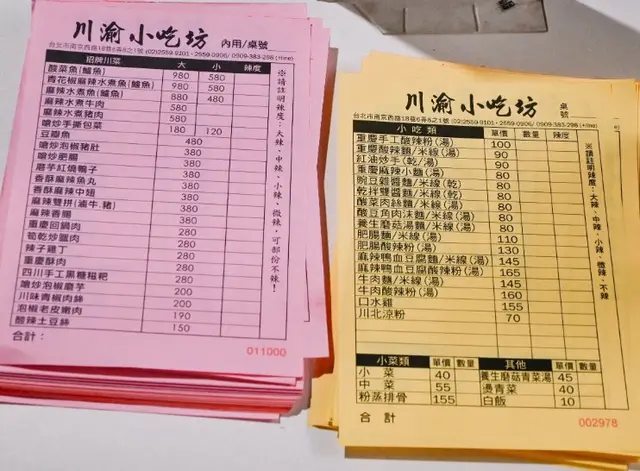 川渝小吃坊 內用/桌號
台北市南京西路18巷6弄8之1號 (02)2559-9101、2559-0906/ 0909-383-298 (+line)
招牌川菜 大 小 辣度
酸菜魚(鱸魚) 980 580
青花椒麻辣水煮魚(鱸魚) 980 580
麻辣水煮魚(鱸魚) 880 480
麻辣水煮牛肉 580
麻辣水煮豬肉 580
嗆炒手撕包菜 180 120
豆瓣魚 480
嗆炒泡椒豬肚 380
嗆炒肥腸 380
磨芋紅燒鴨子 380
香酥麻辣魚丸 380
香酥麻辣中翅 380
麻辣雙拼(滷牛.豬) 380
麻辣香腸 380
重慶回鍋肉 280
筍乾炒臘肉 280
辣子雞丁 280
重慶酥肉 280
四川手工黑糖糍粑 280
嗆炒泡椒磨芋 200
川味青椒肉絲 200
泡椒老皮嫩肉 190
酸辣土豆絲 150
※請註明辣度:大辣、中辣、小辣、微辣,可部份不辣!
合計:
011000
川渝小吃坊 桌號
台北市南京西路18巷6弄8之1號 (02)2559-9101、2559-0906/ 0909-383-298 (+line)
小吃類 單價 數量 辣度
重慶手工酸辣粉(湯) 100
重慶酸辣麵/米線(湯) 90
紅油炒手(乾) 90
重慶麻辣小麵(湯) 80
豌豆雜醬麵/米線(乾) 80
乾拌雙醬麵/米線(乾) 80
酸菜肉絲麵/米線(湯) 80
酸豆角肉沫麵/米線(湯) 80
養生磨菇湯麵/米線(湯) 80
肥腸麵/米線(湯) 110
肥腸酸辣粉(湯) 130
麻辣鴨血豆腐麵/米線(湯) 145
麻辣鴨血豆腐酸辣粉(湯) 165
牛肉麵/米線(湯) 145
牛肉酸辣粉(湯) 160
口水雞 155
川北涼粉 70
※請註明辣度:大辣、中辣、小辣、微辣、不辣
小菜類 單價 數量 其他 單價 數量
小菜 40 養生磨菇青菜湯 45
中菜 55 燙青菜 40
粉蒸排骨 155 白飯 10
合計
002978